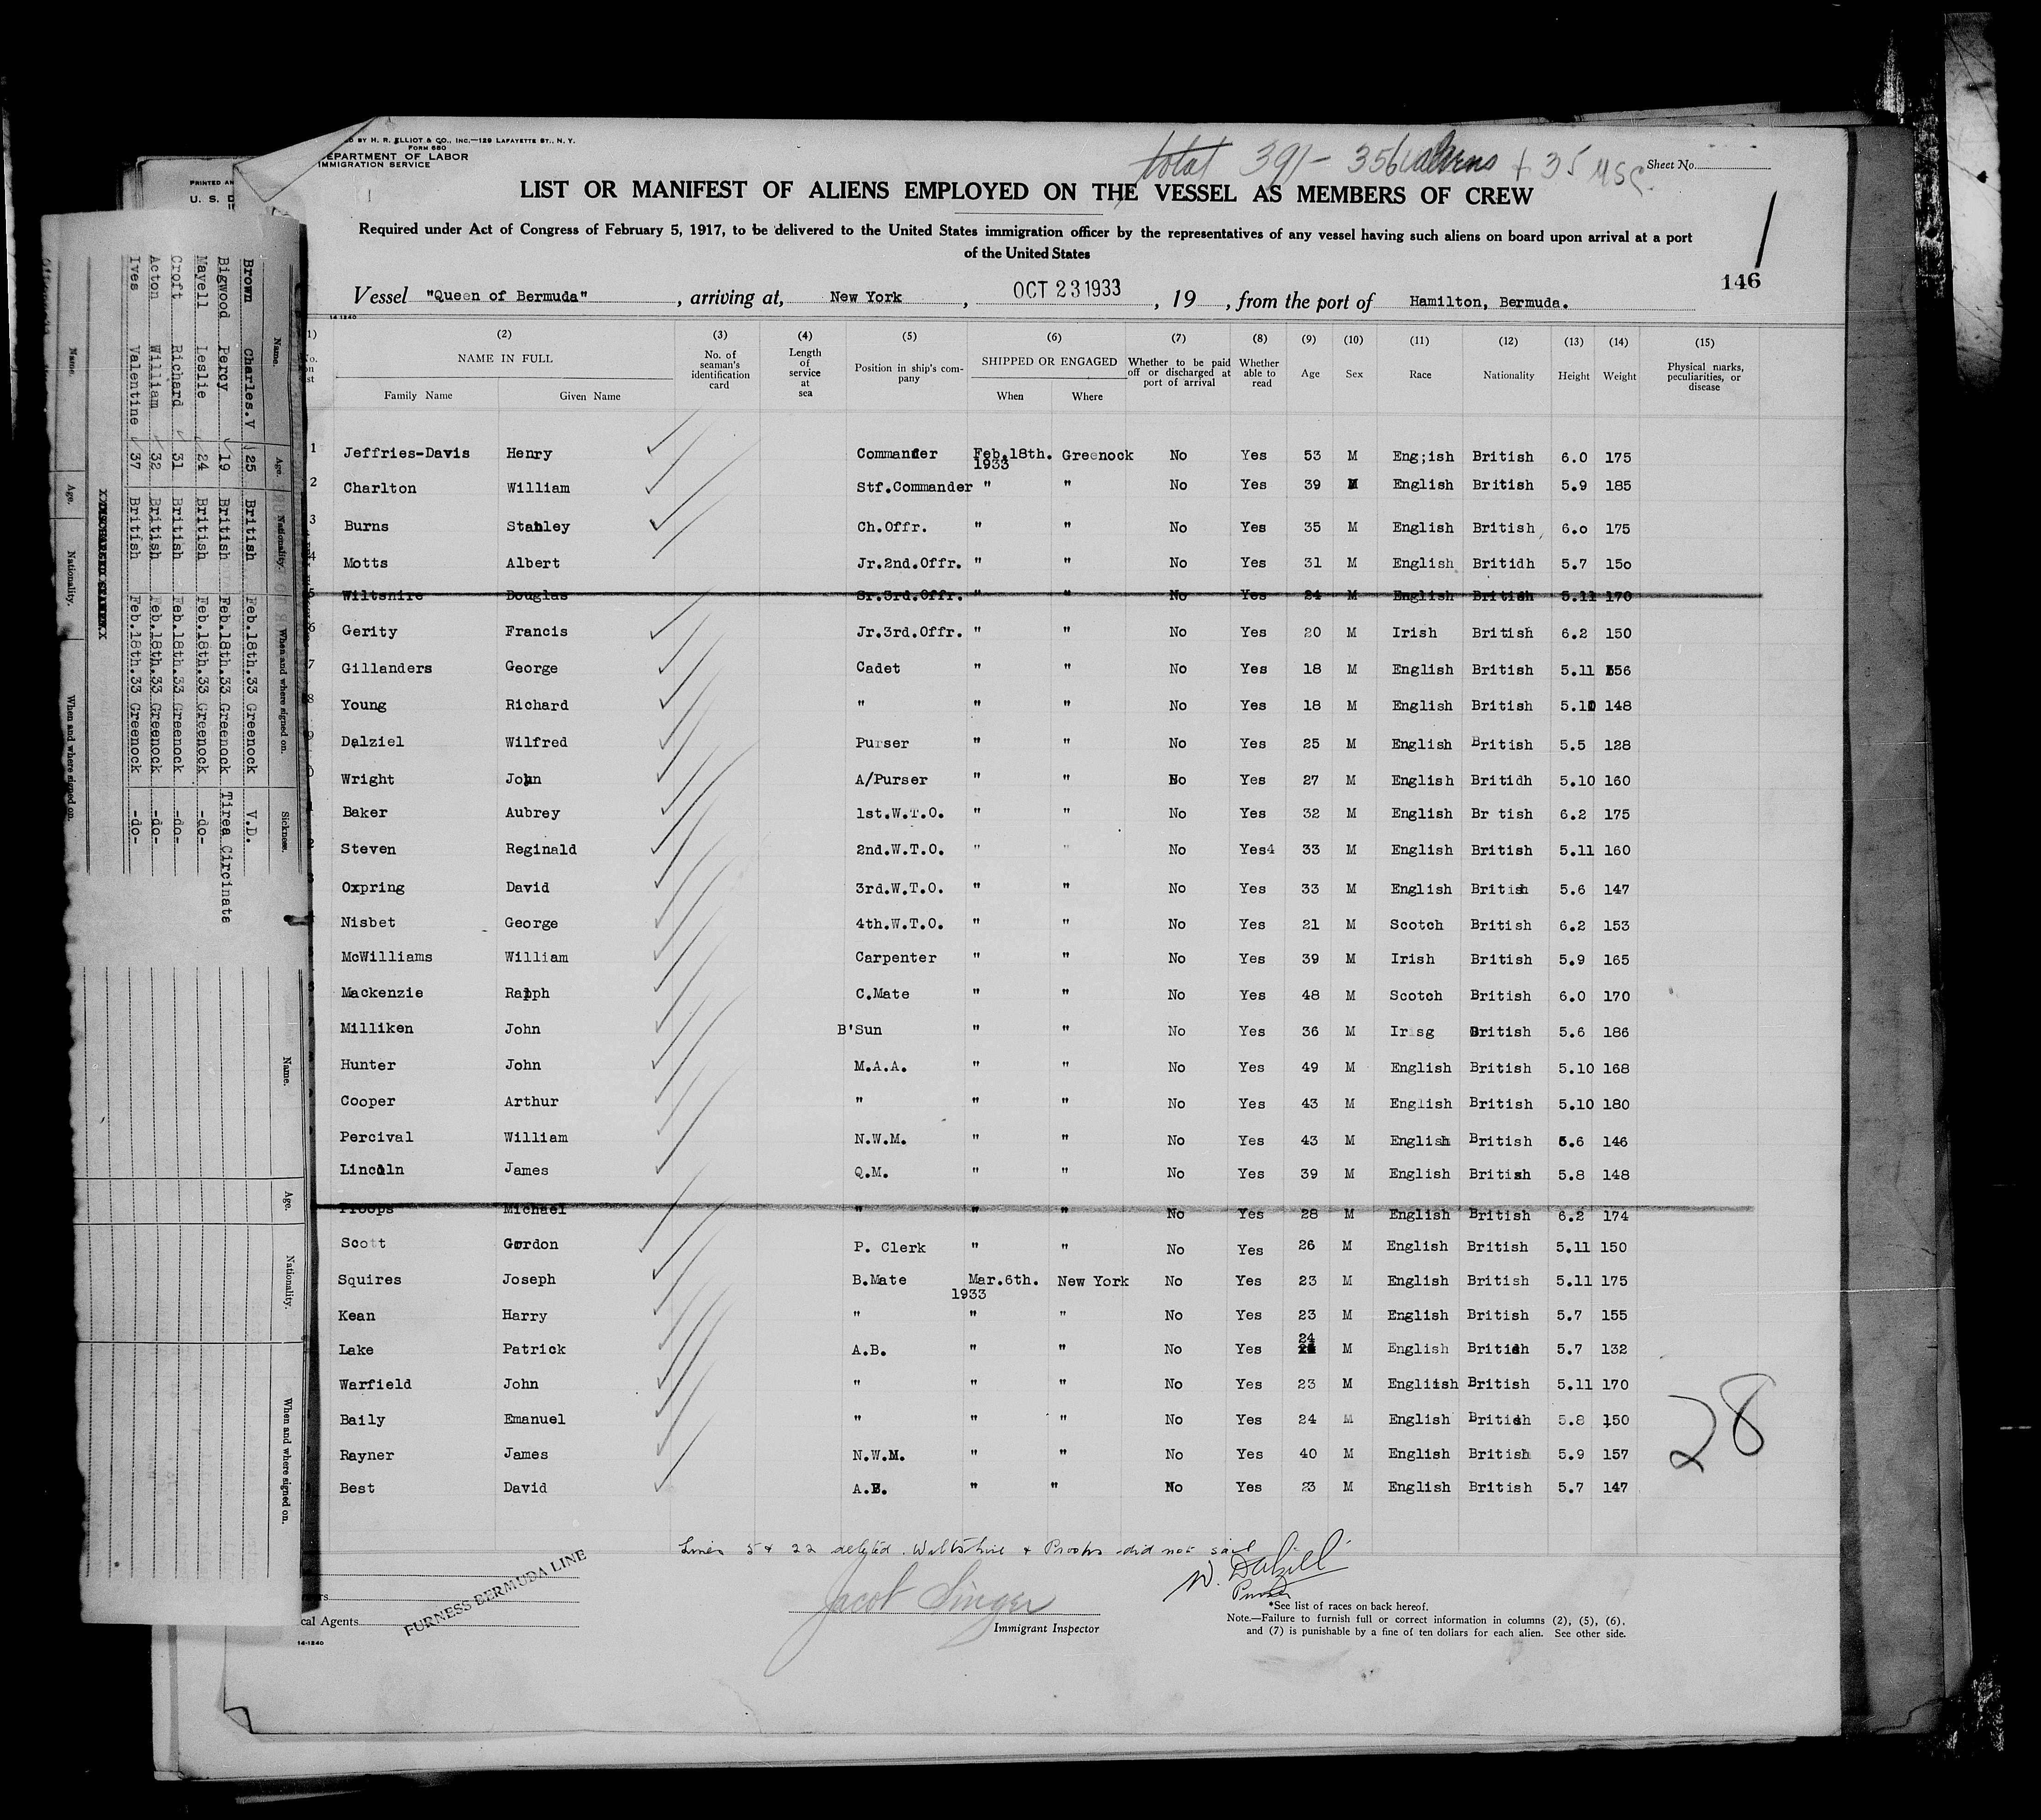 D BY H. R. ELLIOT & CO., INC.—129 LAFAYETTE ST., N. Y.
FORM 680
EPARTMENT OF LABOR
IMMIGRATION SERVICE
PRINTED AN
U. S. D
total 391 - 356 aliens + 35 USC.
Sheet No.
LIST OR MANIFEST OF ALIENS EMPLOYED ON THE VESSEL AS MEMBERS OF CREW
Required under Act of Congress of February 5, 1917, to be delivered to the United States immigration officer by the representatives of any vessel having such aliens on board upon arrival at a port
of the United States
1
146
Vessel "Queen of Bermuda", arriving at, New York, OCT 23 1933, 19 , from the port of Hamilton, Bermuda.
14-1240
(2) (3) (4) (5) (6) (7) (8) (9) (10) (11) (12) (13) (14) (15)
NAME IN FULL No. of seaman's identification card Length of service at sea Position in ship's company SHIPPED OR ENGAGED Whether to be paid off or discharged at port of arrival Whether able to read Age Sex Race Nationality Height Weight Physical marks, peculiarities, or disease
Family Name Given Name When Where
1 Jeffries-Davis Henry Commander Feb.18th. 1933 Greenock No Yes 53 M Eng;ish British 6.0 175
2 Charlton William Stf.Commander " " No Yes 39 M English British 5.9 185
3 Burns Stanley Ch.Offr. " " No Yes 35 M English British 6.o 175
4 Motts Albert Jr.2nd.Offr. " " No Yes 31 M English Britidh 5.7 15o
5 Wiltshire Douglas Sr.3rd.Offr. " " No Yes 24 M English British 5.11 170
6 Gerity Francis Jr.3rd.Offr. " " No Yes 20 M Irish British 6.2 150
7 Gillanders George Cadet " " No Yes 18 M English British 5.11 156
8 Young Richard " " " No Yes 18 M English British 5.10 148
9 Dalziel Wilfred Purser " " No Yes 25 M English British 5.5 128
0 Wright John A/Purser " " No Yes 27 M English Britidh 5.10 160
Baker Aubrey 1st.W.T.O. " " No Yes 32 M English Br tish 6.2 175
Steven Reginald 2nd.W.T.O. " " No Yes4 33 M English British 5.11 160
Oxpring David 3rd.W.T.O. " " No Yes 33 M English British 5.6 147
Nisbet George 4th.W.T.O. " " No Yes 21 M Scotch British 6.2 153
McWilliams William Carpenter " " No Yes 39 M Irish British 5.9 165
Mackenzie Ralph C.Mate " " No Yes 48 M Scotch British 6.0 170
Milliken John B'Sun " " No Yes 36 M Irisg British 5.6 186
Hunter John M.A.A. " " No Yes 49 M English British 5.10 168
Cooper Arthur " " " No Yes 43 M English British 5.10 180
Percival William N.W.M. " " No Yes 43 M English British 5.6 146
Lincoln James Q.M. " " No Yes 39 M English British 5.8 148
Proops Michael " " " No Yes 28 M English British 6.2 174
Scott Gordon P. Clerk " " No Yes 26 M English British 5.11 150
Squires Joseph B.Mate Mar.6th. 1933 New York No Yes 23 M English British 5.11 175
Kean Harry " " " No Yes 23 M English British 5.7 155
Lake Patrick A.B. " " No Yes 24 M English British 5.7 132
Warfield John " " " No Yes 23 M Engliish British 5.11 170
Baily Emanuel " " " No Yes 24 M English British 5.8 150
Rayner James N.W.M. " " No Yes 40 M English British 5.9 157
Best David A.B. " " No Yes 23 M English British 5.7 147
28
Lines 5 & 22 deleted. Wiltshire & Proops did not sail
W. Dalziel
Purser
Jacob Singer
Immigrant Inspector
FURNESS BERMUDA LINE
cal Agents
14-1240
*See list of races on back hereof.
Note.—Failure to furnish full or correct information in columns (2), (5), (6),
and (7) is punishable by a fine of ten dollars for each alien. See other side.
Name. Age. Nationality. When and where signed on. Sickness.
Brown Charles.V 25 British Feb.18th.33 Greenock V.D.
Bigwood Percy 19 British Feb.18th.33 Greenock Tirea Circinata
Mayell Leslie 24 British Feb.18th.33 Greenock -do-
Croft Richard 31 British Feb.18th.33 Greenock -do-
Acton William 32 British Feb.18th.33 Greenock -do-
Ives Valentine 37 British Feb.18th.33 Greenock -do-
Name. Age. Nationality. When and where signed on.
Name. Age. Nationality. When and where signed on.